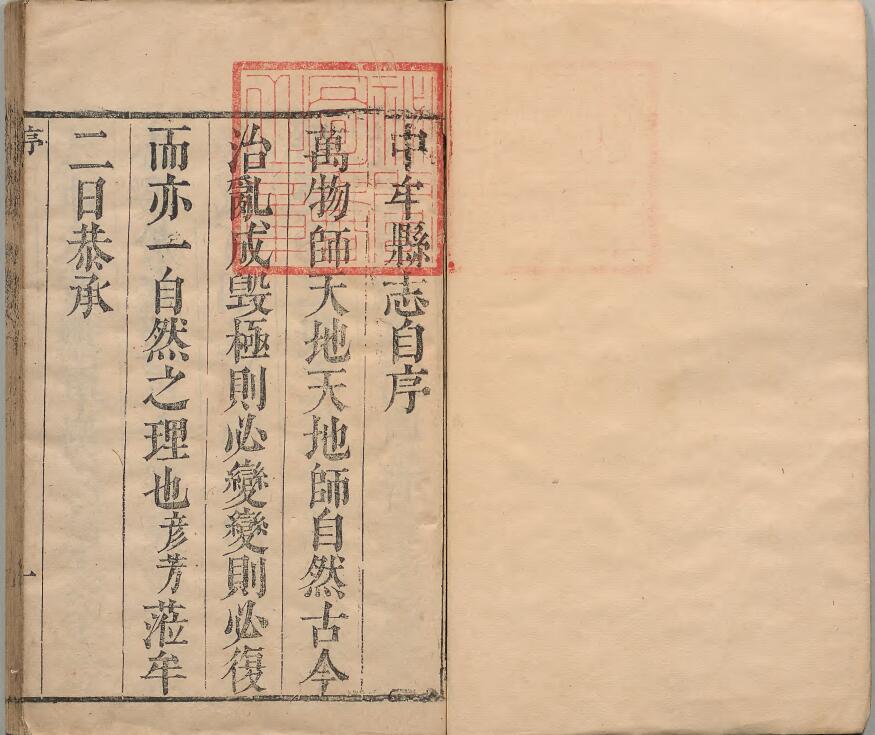 中牟縣志自序
萬物師天地天地師自然古今
治亂成毁極則必變變則必復
而亦一自然之理也彦芳蒞牟
二日恭承
序
一